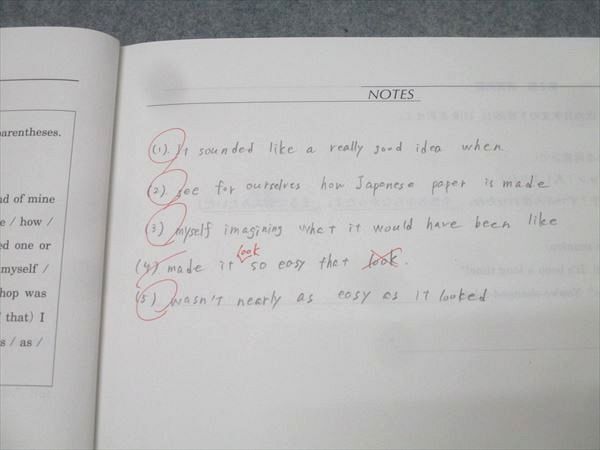 parentheses.
nd of mine
e / how /
ed one or
myself /
hop was
that) I
s / as /
NOTES
(1). It sounded like a really good idea when
(2) see for ourselves how Japanese paper is made
(3) myself imagining what it would have been like
look
(4) made it so easy that look.
(5) wasn't nearly as easy as it looked